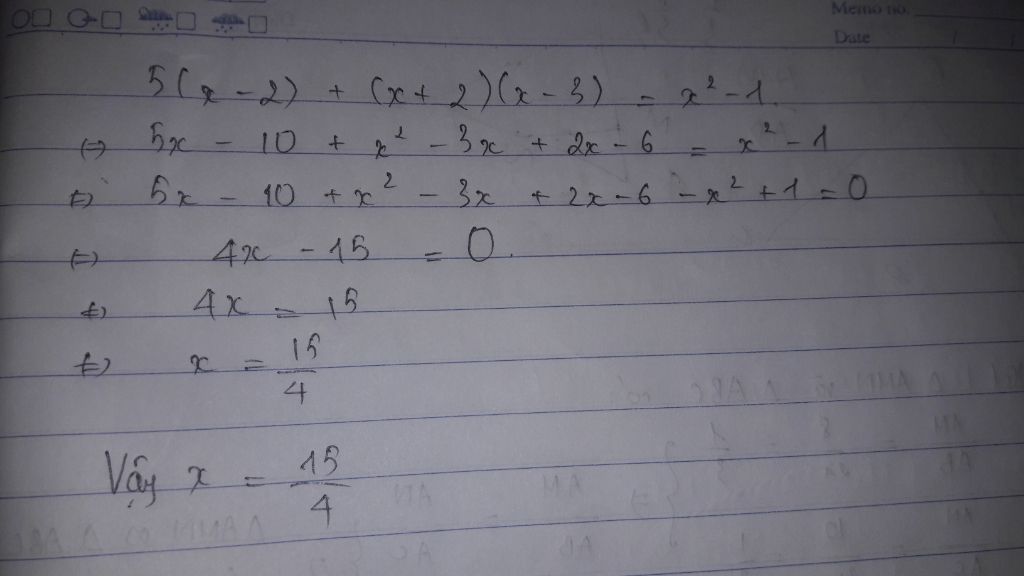 Memo no.
Date
5(x - 2) + (x + 2)(x - 3) = x² - 1.
(=) 5x - 10 + x² - 3x + 2x - 6 = x² - 1
(=) 5x - 10 + x² - 3x + 2x - 6 - x² + 1 = 0
(=) 4x - 15 = 0.
(=) 4x = 15
(=) x = 15/4
Vậy x = 15/4